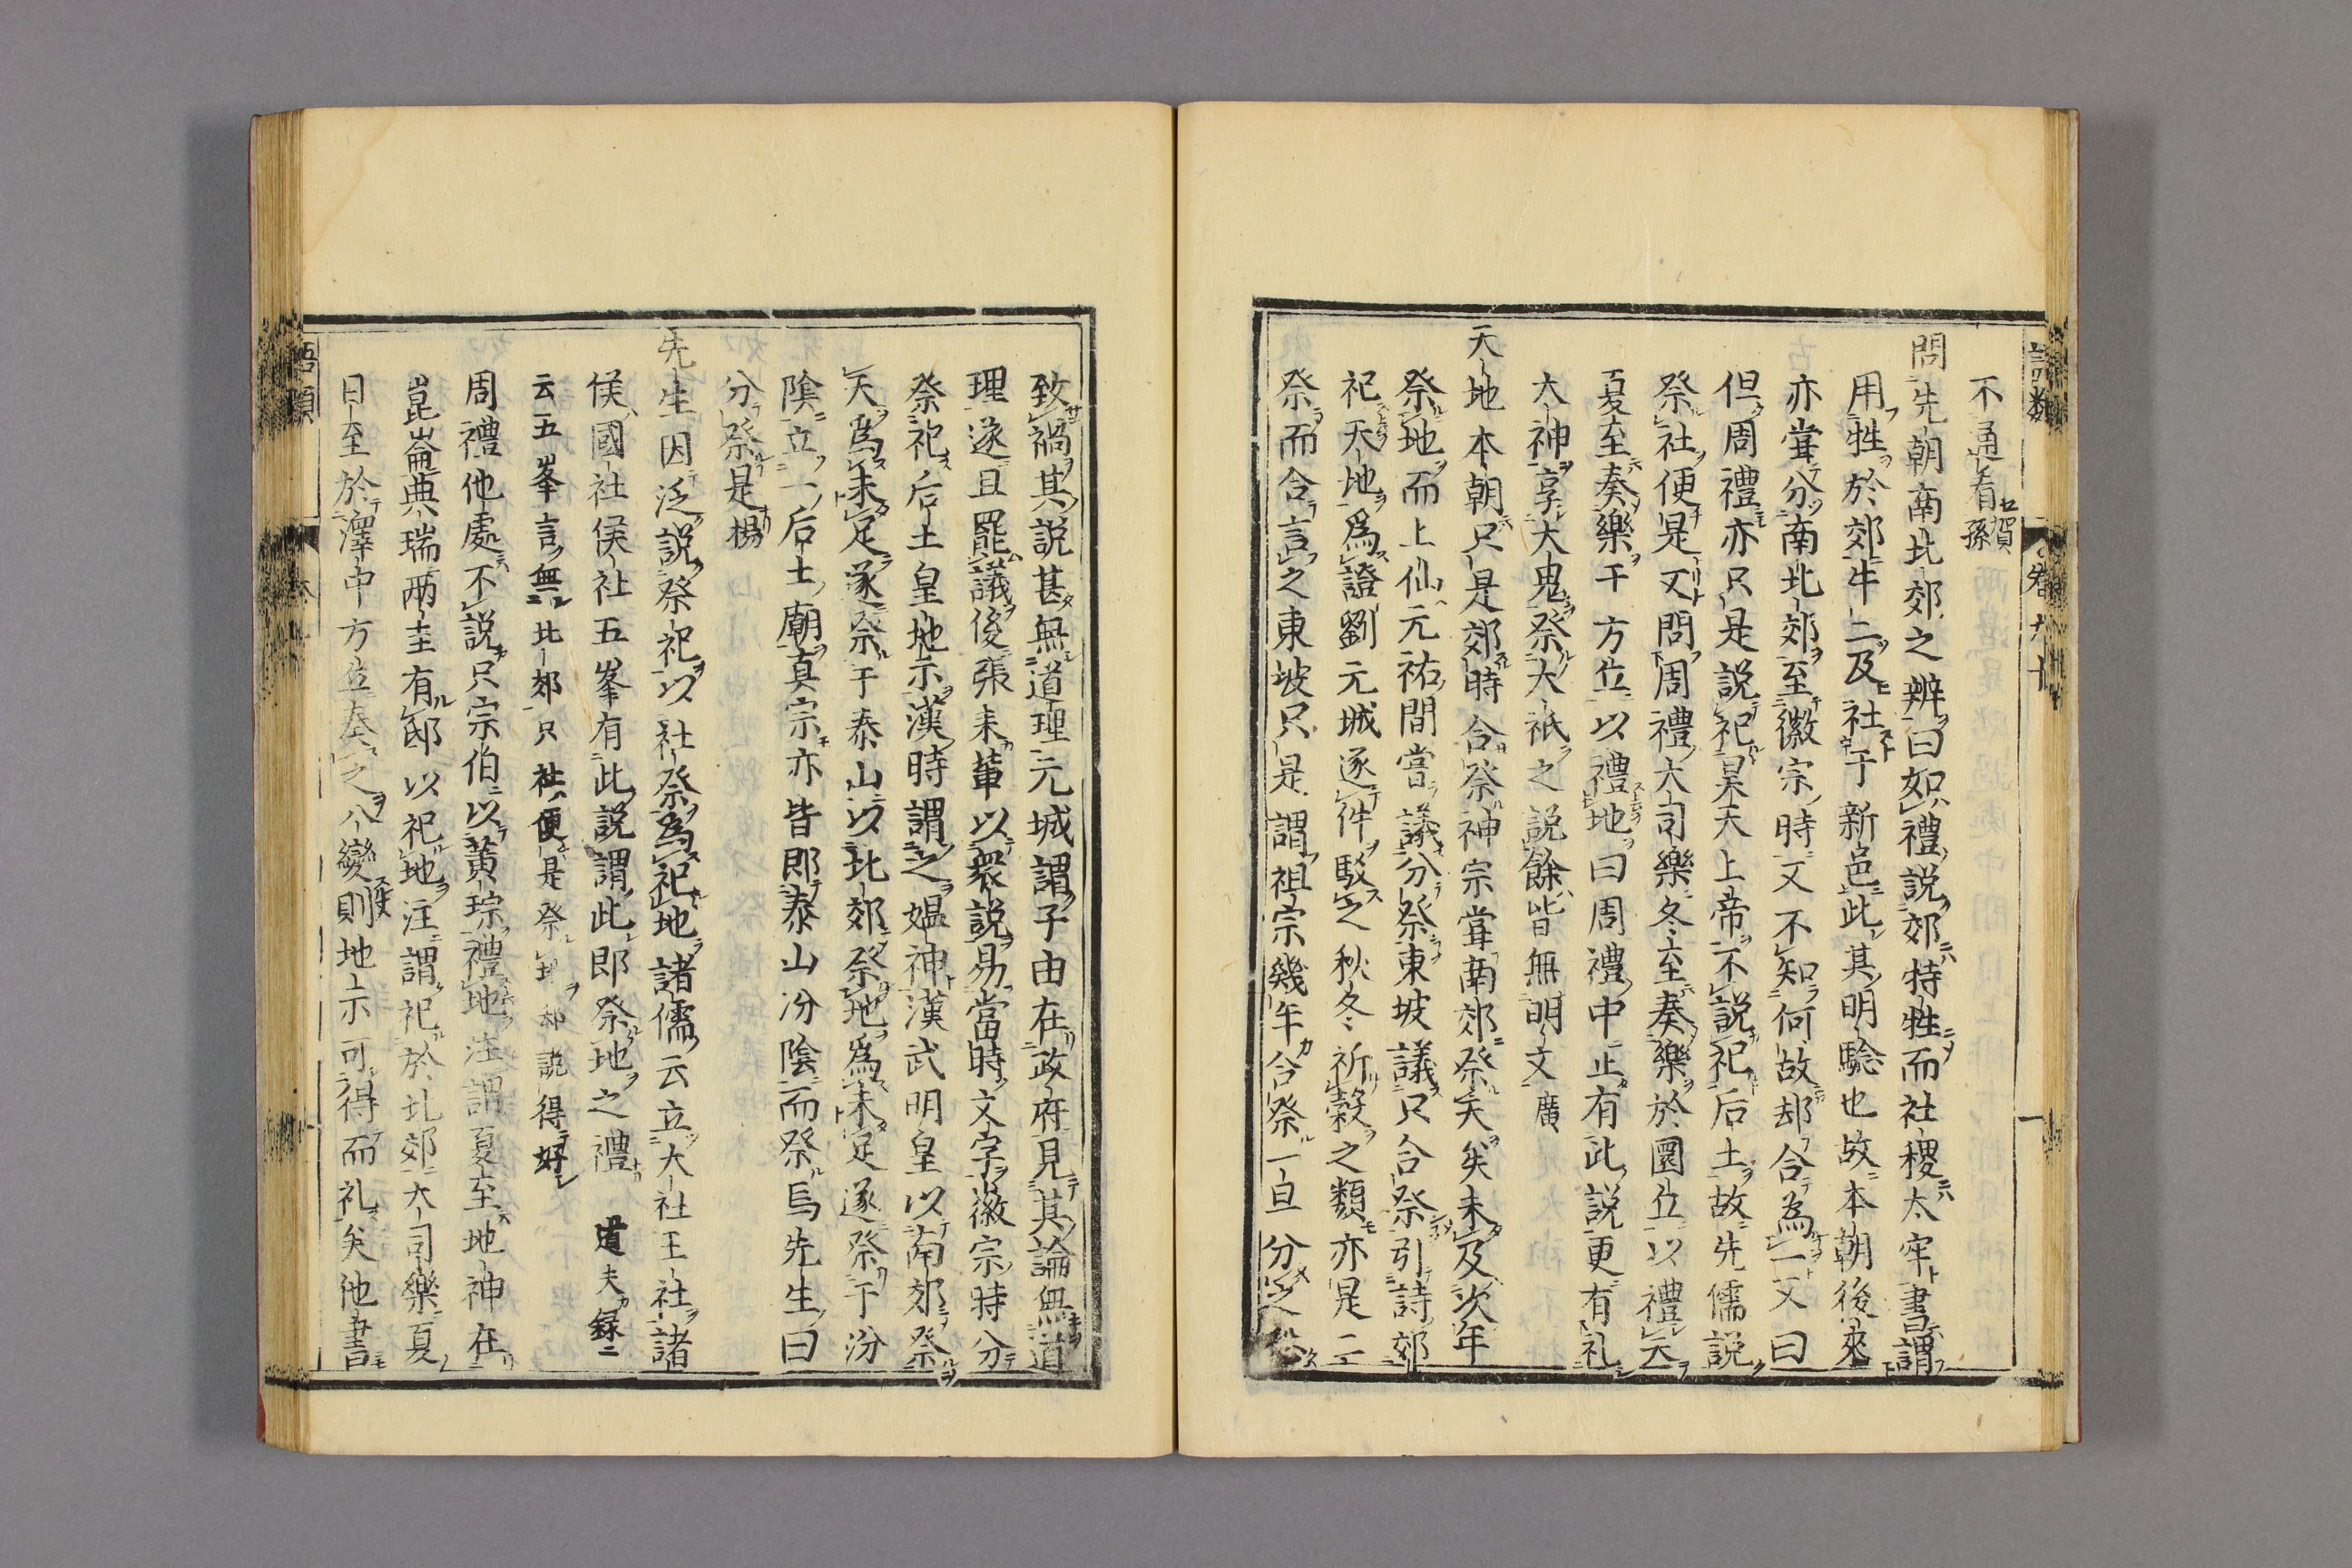 不通看賀孫
問先朝南北郊之辨曰如禮説郊特牲而社稷太牢書謂
用牲於郊牛二及社于新邑此其明驗也故本朝後來
亦嘗分南北郊至徽宗時又不知何故却合為一又曰
但周禮亦只是説祀昊天上帝不説祀后土故先儒説
祭社便是又問周禮大司樂冬至奏樂於圜丘以禮天
夏至奏樂于方丘以禮地曰周禮中止有此説更有礼
大神享大鬼祭大祇之説餘皆無明文廣
天地本朝只是郊時合祭神宗嘗南郊祭天矣未及次年
祭地而上仙元祐間嘗議分祭東坡議只合祭引詩郊
祀天地為證劉元城逐件駁之秋冬祈穀之類亦是二
祭而合言之東坡只是謂祖宗幾年合祭一旦分之恐
致禍其説甚無道理元城謂子由在政府見其論無道
理遂且罷議後張耒輩以衆説易當時文字徽宗時分
祭祀后土皇地示漢時謂之媼神漢武明皇以南郊祭
天為未定遂祭于泰山以北郊祭地為未定遂祭于汾
陰立一后土廟真宗亦皆即泰山汾陰而祭焉先生曰
分祭是楊
先生因泛説祭祀以社祭為祀地諸儒云立大社王社諸
侯國社侯社五峯有此説謂此即祭地之禮道夫録
云五峯言無北郊只社便是祭地却説得好
周禮他處不説只宗伯以黄琮禮地注謂夏至地神在
崑崙典瑞兩圭有邸以祀地注謂祀於北郊大司樂夏
日至於澤中方丘奏之八變則地示可得而礼矣他書
語類
語類 卷九十